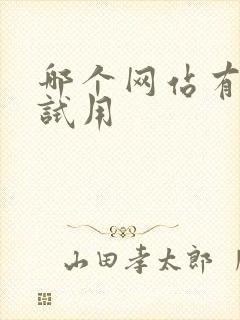 哪个网佔有
試用
山田孝太郎